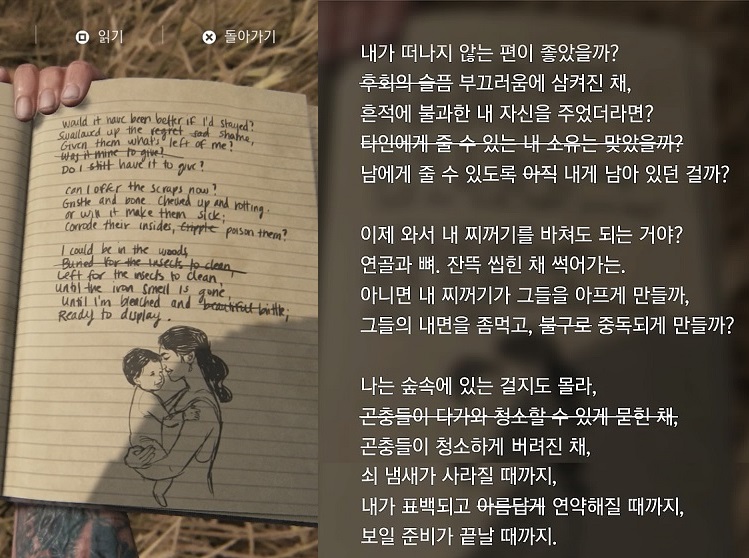 읽기
돌아가기
Would it have been better if I'd stayed?
Swallowed up the regret sad shame,
Given them what's left of me?
Was it mine to give?
Do I still have it to give?
Can I offer the scraps now?
Gristle and bone. Chewed up and rotting.
Or will it make them sick;
Corrode their insides, cripple poison them?
I could be in the woods,
Buried for the insects to clean,
Left for the insects to clean,
until the iron smell is gone
Until I'm bleached and beautiful brittle;
Ready to display.
내가 떠나지 않는 편이 좋았을까?
후회의 슬픔 부끄러움에 삼켜진 채,
흔적에 불과한 내 자신을 주었더라면?
타인에게 줄 수 있는 내 소유는 맞았을까?
남에게 줄 수 있도록 아직 내게 남아 있던 걸까?
이제 와서 내 찌꺼기를 바쳐도 되는 거야?
연골과 뼈. 잔뜩 씹힌 채 썩어가는.
아니면 내 찌꺼기가 그들을 아프게 만들까,
그들의 내면을 좀먹고, 불구로 중독되게 만들까?
나는 숲속에 있는 걸지도 몰라,
곤충들이 다가와 청소할 수 있게 묻힌 채,
곤충들이 청소하게 버려진 채,
쇠 냄새가 사라질 때까지,
내가 표백되고 아름답게 연약해질 때까지,
보일 준비가 끝날 때까지.